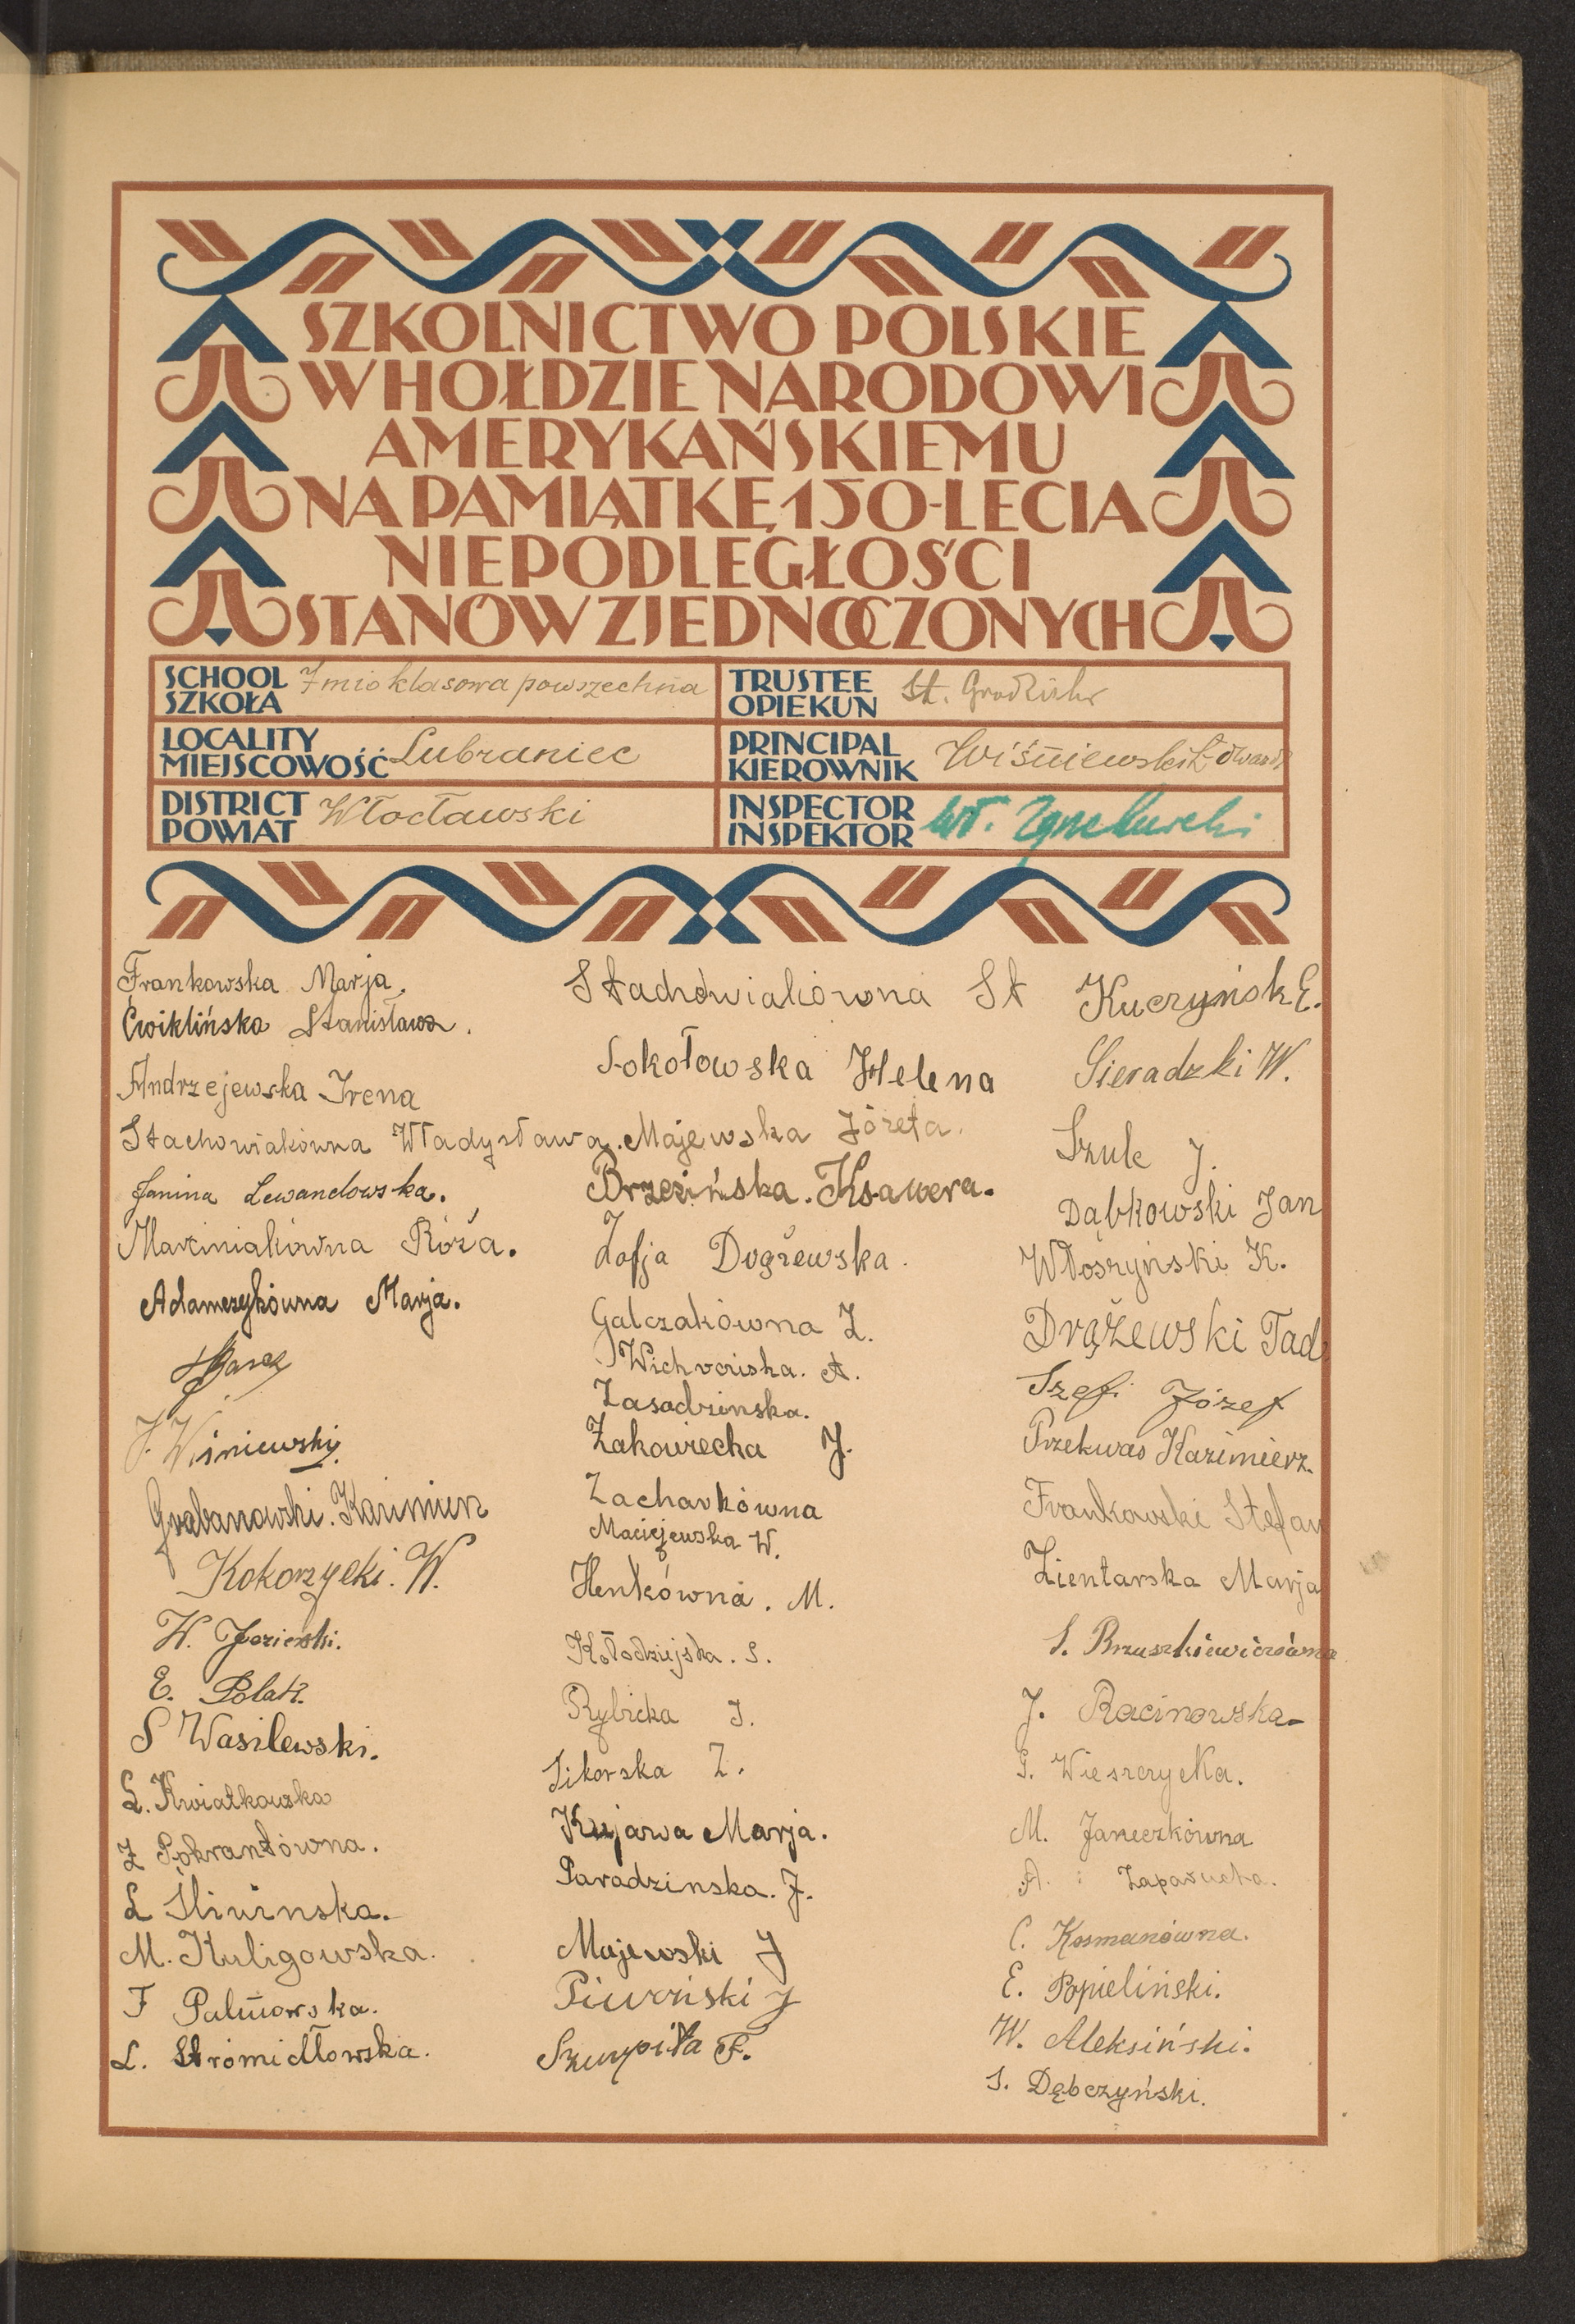 SZKOLNICTWO POLSKIE
W HOŁDZIE NARODOWI
AMERYKAŃSKIEMU
NA PAMIĄTKĘ 150-LECIA
NIEPODLEGŁOŚCI
STANÓW ZJEDNOCZONYCH
SCHOOL
SZKOŁA
7mio klasowa powszechna
TRUSTEE
OPIEKUN
St.
LOCALITY
MIEJSCOWOŚĆ
Lubraniec
PRINCIPAL
KIEROWNIK
Wiśniewski Edward
DISTRICT
POWIAT
Włocławski
INSPECTOR
INSPEKTOR
Wł.
Frankowska Marja.
Ćwiklińska Stanisława.
Andrzejewska Irena
Stachowiakówna Władysława.
Janina Lewandowska.
Marciniakówna Róża.
Adamczykówna Marja.
J. Wiśniewski.
Grabanowski. Kazimierz
Kokorzycki. W.
W. Jezierski.
E. Polak.
S Wasilewski.
L. Kwiatkowska
Z Pokrantówna.
L Śliwinska.
M. Kuligowska.
F Palmowska.
L. Stromidłowska.
Stachowiakówna St
Sokołowska Helena
Majewska Józefa.
Brzezińska. Ksawera.
Zofja Dogżewska.
Galczakówna Z.
A.
Zasadzinska.
Zakowiecka J.
Zacharkówna
Maciejewska W.
Henkówna. M.
Kołodziejska. S.
Rybicka J.
Sikorska Z.
Kujawa Marja.
Paradzinska. J.
Majewski J
Piwiński J
Szurpiła F.
Kuczyńsk E.
Sieradzki W.
Szulc J.
Dąbkowski Jan
Włoszyński K.
Drążewski Tad
Szefi Józef
Przekwas Kazimierz.
Frankowski Stefan
Zientarska Marja
S. Brzuszkiewiczówna
J. Racinowska
G. Wieszczycka.
M. Janeczkówna
A. Zaparucha.
C. Kosmanówna.
E. Popieliński.
W. Aleksiński.
S. Dębczyński.